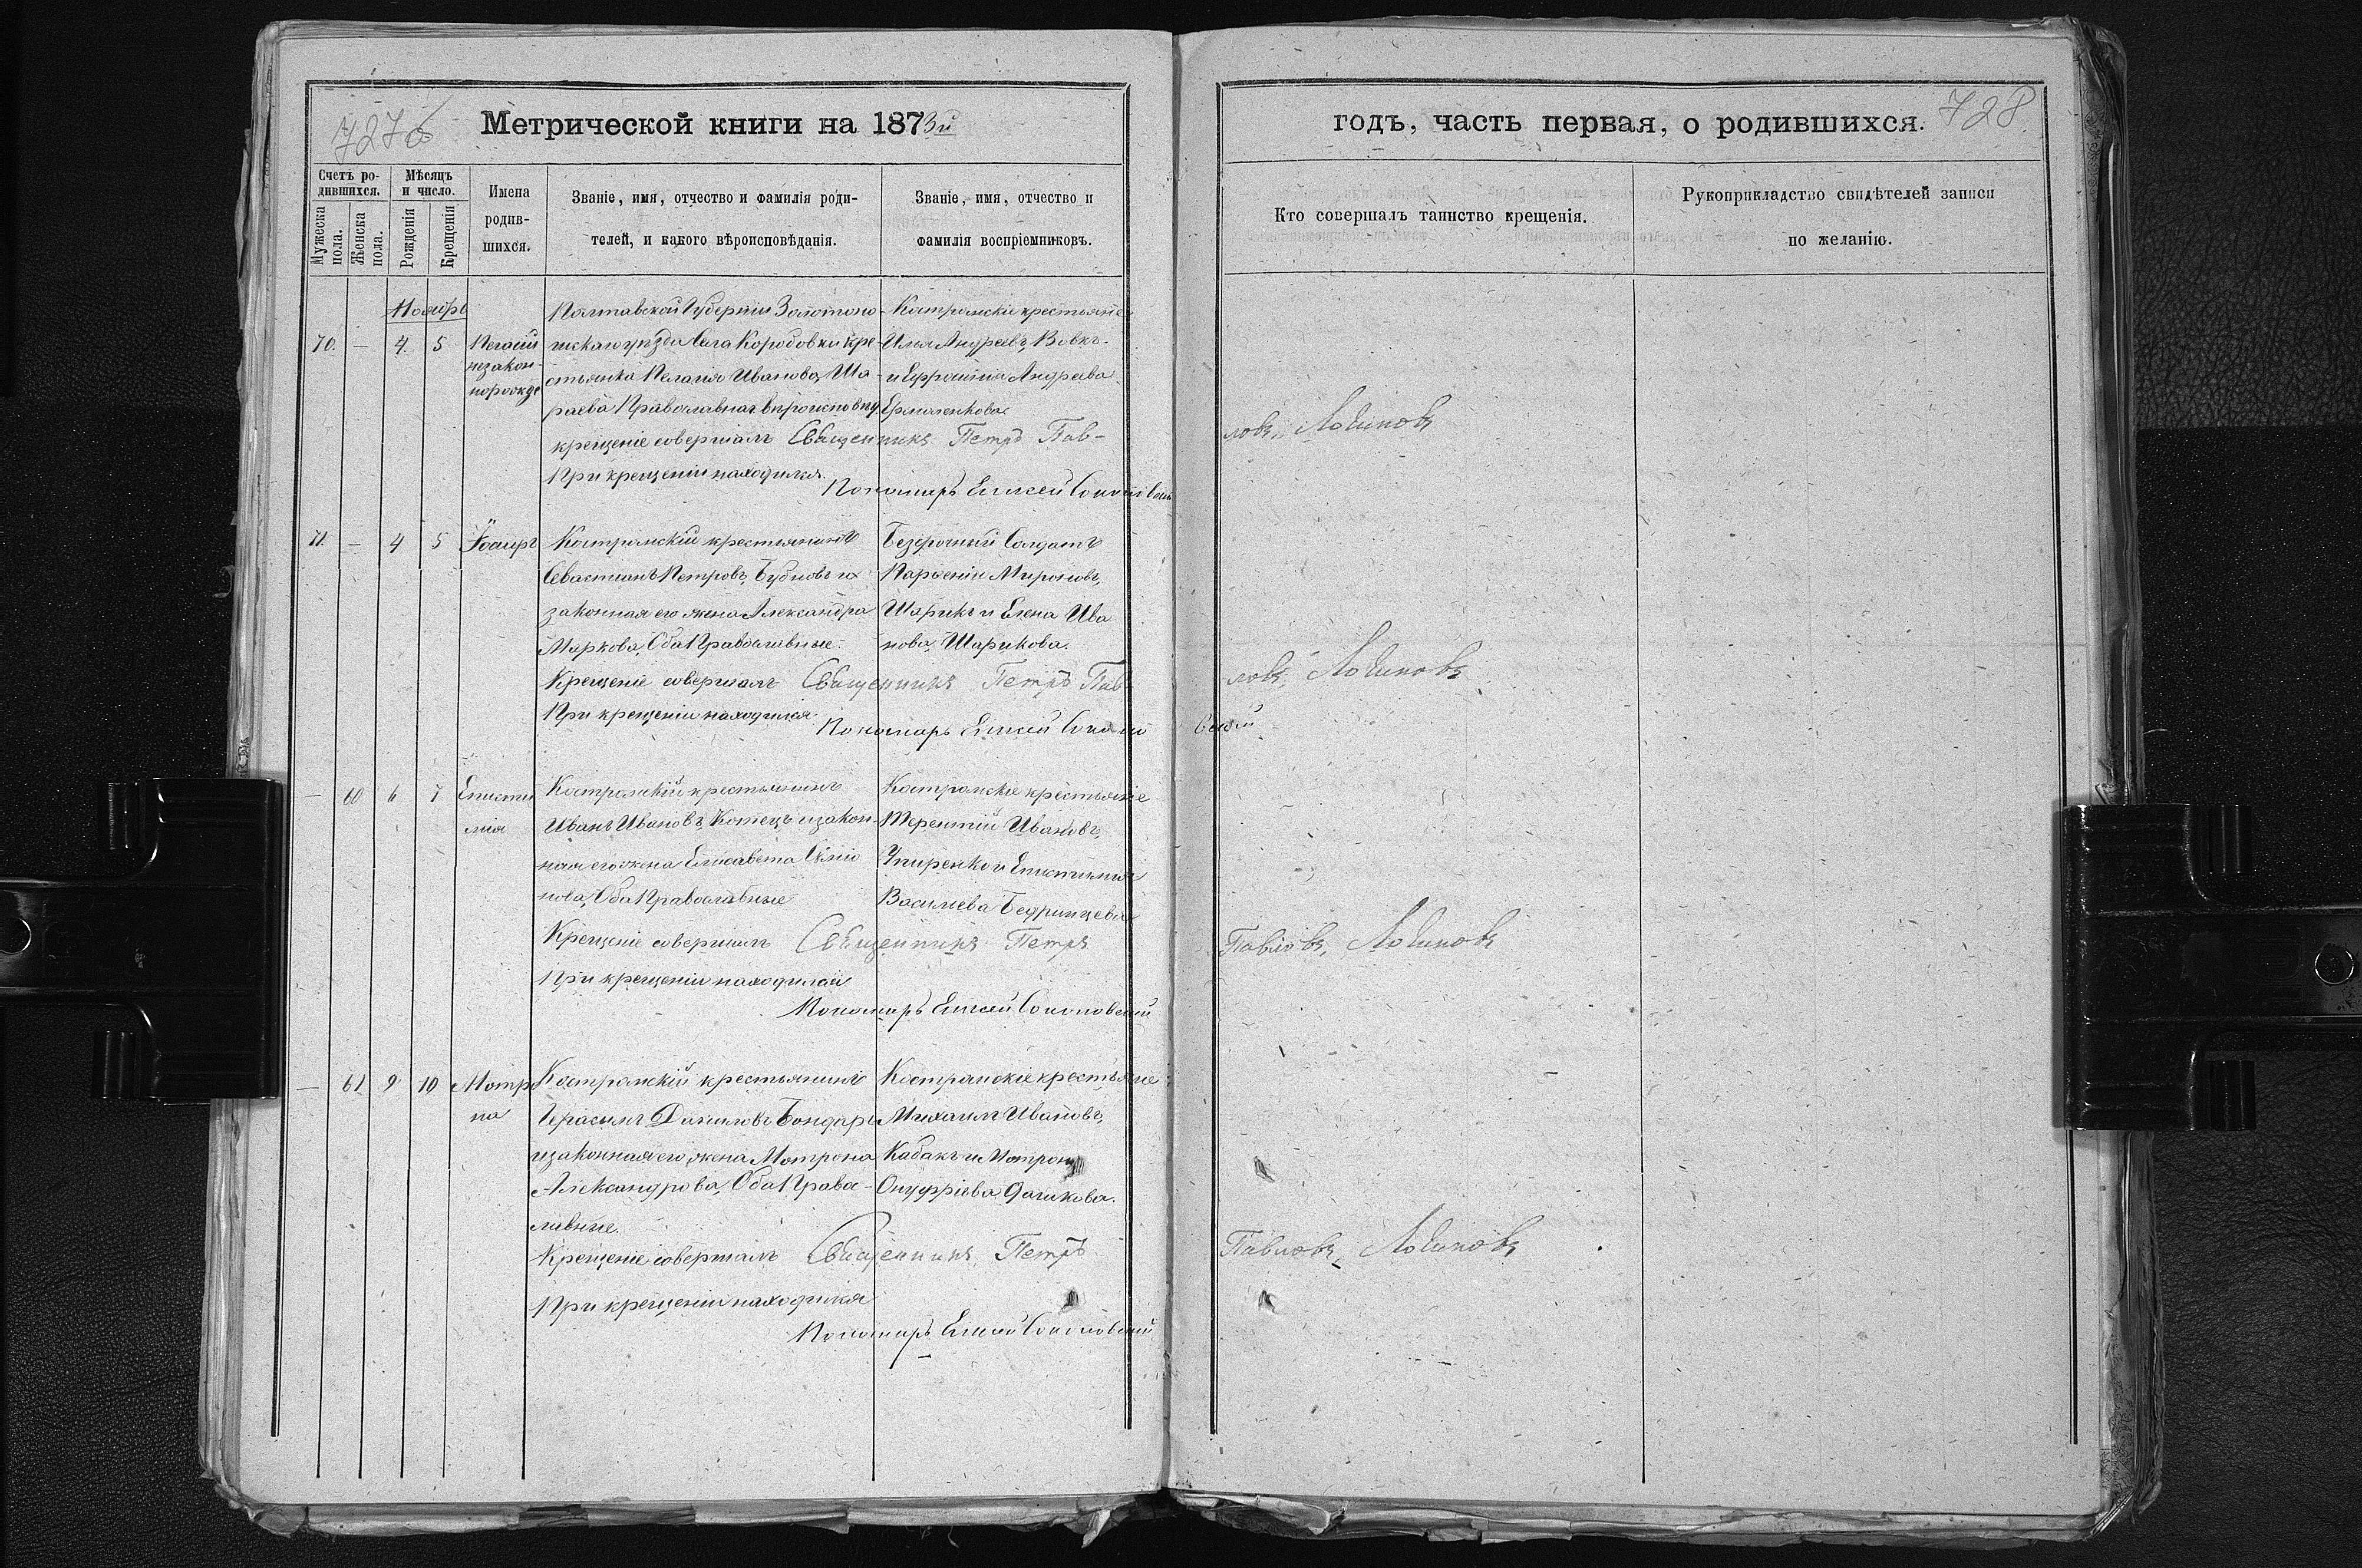 Метрической книги на 1873й
годъ, часть первая, о родившихся.
728
Счетъ ро-
дившихся.
Мужеска пола.
Женска пола.
Мѣсяцъ
и число.
Рожденія
Крещенія
Имена
родив-
шихся.
Званіе, имя, отчество и фамилія роди-
телей, и какого вѣроисповѣданія.
Званіе, имя, отчество и
фамилія воспріемниковъ.
Кто совершалъ таинство крещенія.
Рукоприкладство свидѣтелей записи
по желанію.
Ноябрь
70. — 4 5
незакон-
норожде
Полтавской Губерніи Золотоно-
шскаго уѣзда Села Коробовки кре-
стьянка Пелагія Иванова
Православнаго вѣроисповѣд.
Костромскіе крестьяне
Илья Андреевъ, Вовкъ
и Ефросинія Андреева
Ермоленкова
крещеніе совершалъ Священникъ Петръ Пав-
ловъ, Логиновъ
При крещеніи находился
Пономарь Елисей Соколовскій
71. — 4 5
Костромскій крестьянинъ
Севастианъ Петровъ, Бубновъ и
законная его жена Александра
Маркова, Оба Православные.
Безсрочный Солдатъ
Парѳеній Мироновъ,
Шарикъ и Елена Ива
нова, Шарикова.
Крещеніе совершалъ Священникъ Петръ Пав-
ловъ, Логиновъ
При крещеніи находился
Пономарь Елисей Соколо
вскій
— 60 6 7
Еписти
мія
Костромскій крестьянинъ
Иванъ Ивановъ, Котецъ и закон-
ная его жена Елисавета
нова, Оба Православные
Костромскіе крестьяне
Терентій Ивановъ,
и Епистимія
Васильева
Крещеніе совершалъ Священникъ Петръ
Павловъ, Логиновъ
При крещеніи находился
Пономарь Елисей Соколовскій
— 61 9 10
Мотро
на
Костромскій крестьянинъ
Герасимъ Даниловъ Бондарь
и законная его жена Мотрона
Александрова, Оба Право-
славные.
Костромскіе крестьяне
Михаилъ Ивановъ,
Кабакъ и Мотрона
Онуфріева
Крещеніе совершалъ Священникъ Петръ
Павловъ, Логиновъ
При крещеніи находился
Пономарь Елисей Соколовскій